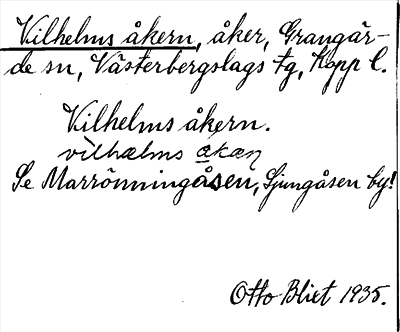 Vilhelms åkern, åker, Grangär-
de sn, Västerbergslags tg, Kopp l.
Vilhelms åkern.
vìlhælms
Se Marrönningåsen, Sjungåsen by!
Otto Blixt 1935.